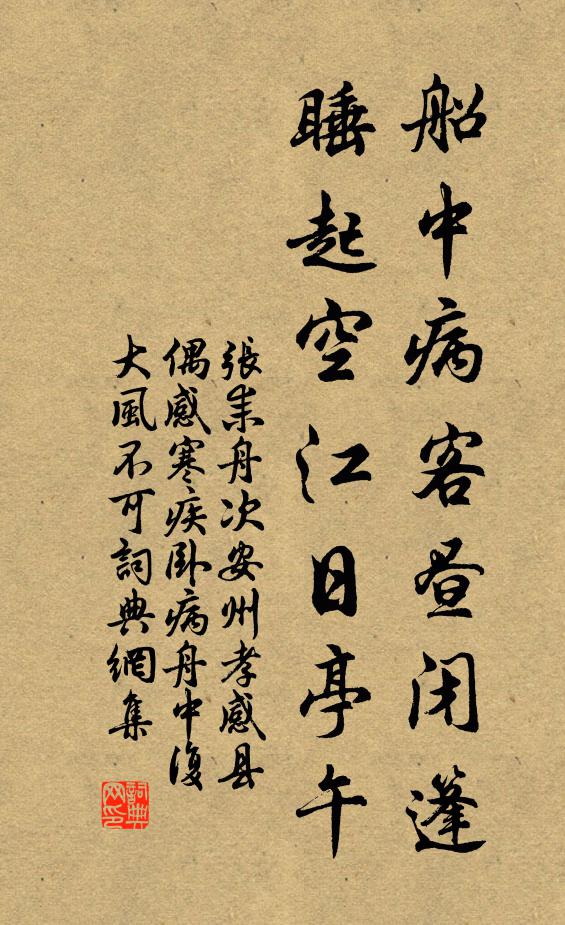 船中病客昼闭篷
睡起空江日亭午
張耒舟次安州孝感县
偶感寒疾卧病舟中復
大風不可詞典網集
詞典
网印